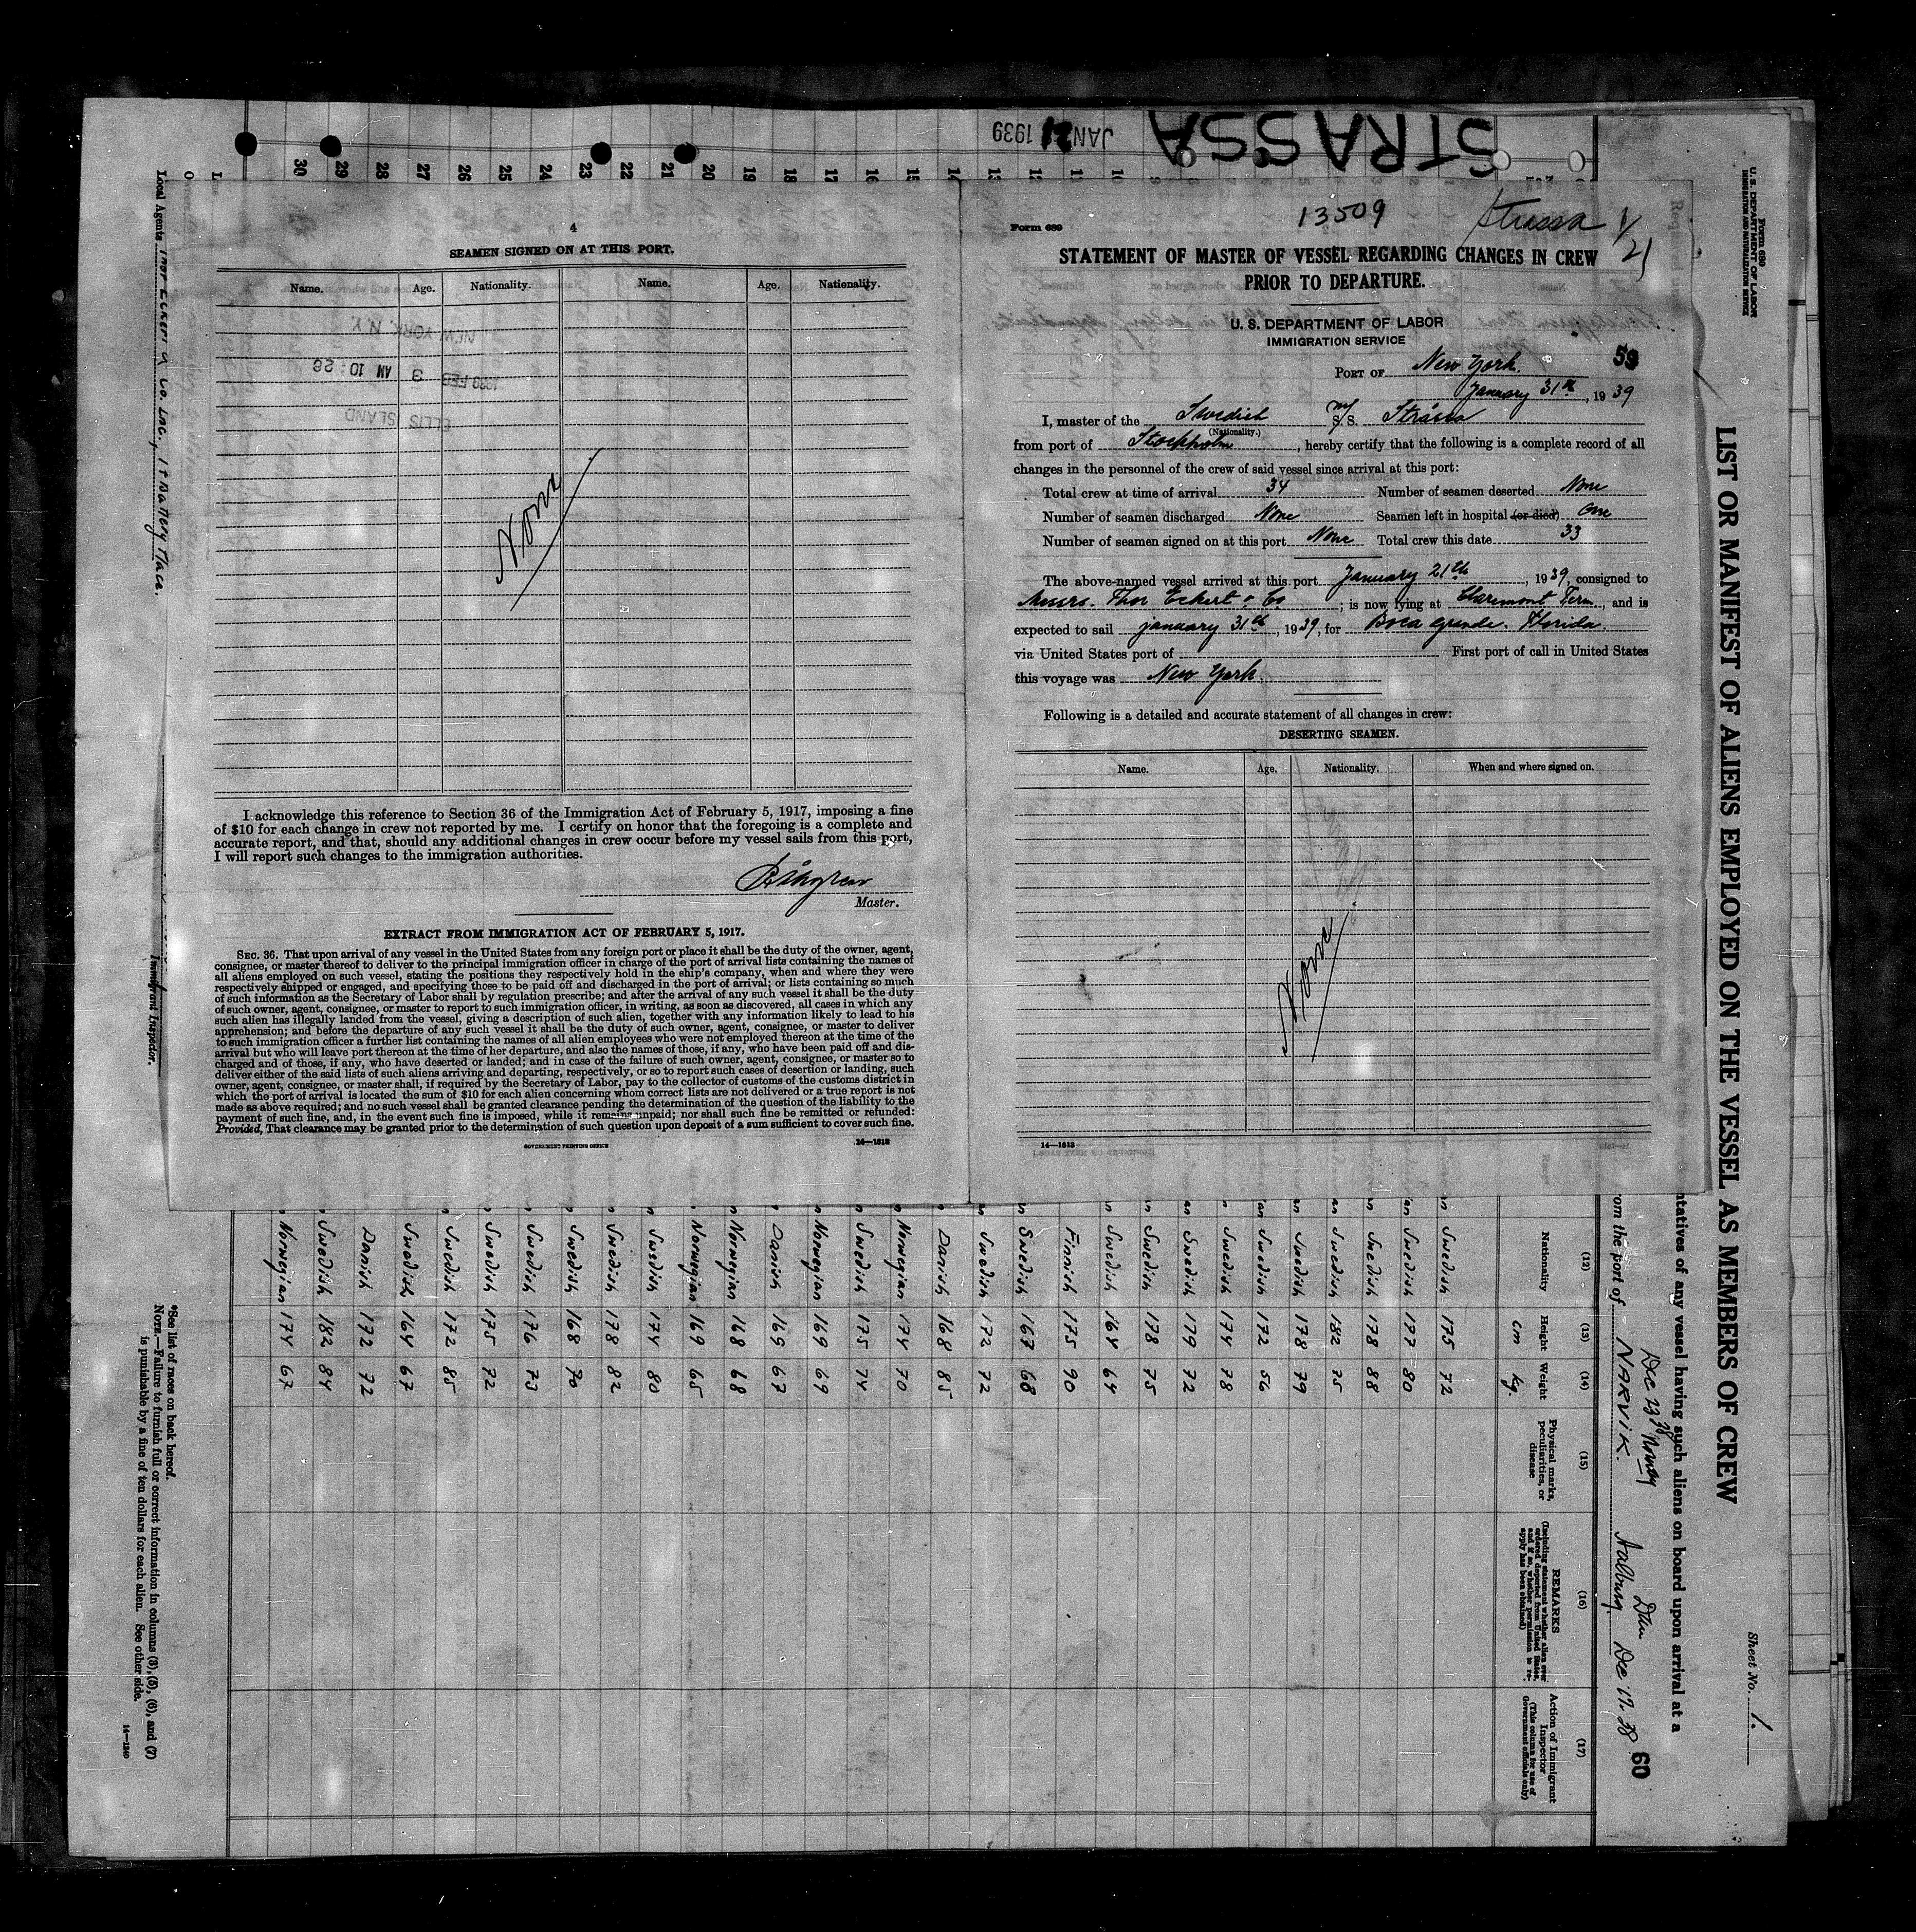 STRASSA
JAN 21 1939
30 29 28 27 26 25 24 23 22 21 20 19 18 17 16 15 14 13 12 11 10
4
SEAMEN SIGNED ON AT THIS PORT.
Name. Age. Nationality. Name. Age. Nationality.
NEW YORK, N.Y.
FEB 3 AM 10:28
ELLIS ISLAND
None
I acknowledge this reference to Section 36 of the Immigration Act of February 5, 1917, imposing a fine
of $10 for each change in crew not reported by me. I certify on honor that the foregoing is a complete and
accurate report, and that, should any additional changes in crew occur before my vessel sails from this port,
I will report such changes to the immigration authorities.
Master.
EXTRACT FROM IMMIGRATION ACT OF FEBRUARY 5, 1917.
SEC. 36. That upon arrival of any vessel in the United States from any foreign port or place it shall be the duty of the owner, agent,
consignee, or master thereof to deliver to the principal immigration officer in charge of the port of arrival lists containing the names of
all aliens employed on such vessel, stating the positions they respectively hold in the ship's company, when and where they were
respectively shipped or engaged, and specifying those to be paid off and discharged in the port of arrival; or lists containing so much
of such information as the Secretary of Labor shall by regulation prescribe; and after the arrival of any such vessel it shall be the duty
of such owner, agent, consignee, or master to report to such immigration officer, in writing, as soon as discovered, all cases in which any
such alien has illegally landed from the vessel, giving a description of such alien, together with any information likely to lead to his
apprehension; and before the departure of any such vessel it shall be the duty of such owner, agent, consignee, or master to deliver
to such immigration officer a further list containing the names of all alien employees who were not employed thereon at the time of the
arrival but who will leave port thereon at the time of her departure, and also the names of those, if any, who have been paid off and dis-
charged and of those, if any, who have deserted or landed; and in case of the failure of such owner, agent, consignee, or master so to
deliver either of the said lists of such aliens arriving and departing, respectively, or so to report such cases of desertion or landing, such
owner, agent, consignee, or master shall, if required by the Secretary of Labor, pay to the collector of customs of the customs district in
which the port of arrival is located the sum of $10 for each alien concerning whom correct lists are not delivered or a true report is not
made as above required; and no such vessel shall be granted clearance pending the determination of the question of the liability to the
payment of such fine, and, in the event such fine is imposed, while it remains unpaid; nor shall such fine be remitted or refunded:
Provided, That clearance may be granted prior to the determination of such question upon deposit of a sum sufficient to cover such fine.
GOVERNMENT PRINTING OFFICE 14—1613
Form 689 13509 Strassa 1/21
STATEMENT OF MASTER OF VESSEL REGARDING CHANGES IN CREW
PRIOR TO DEPARTURE.
U. S. DEPARTMENT OF LABOR
IMMIGRATION SERVICE
59
PORT OF New York.
January 31th, 1939
I, master of the Swedish M/S. S. Stråssa
(Nationality.)
from port of Stockholm, hereby certify that the following is a complete record of all
changes in the personnel of the crew of said vessel since arrival at this port:
Total crew at time of arrival 34 Number of seamen deserted None
Number of seamen discharged None Seamen left in hospital (or died) one
Number of seamen signed on at this port None Total crew this date 33
The above-named vessel arrived at this port January 21th, 1939, consigned to
Messrs. Thor Eckert & Co; is now lying at Claremont Term., and is
expected to sail january 31th, 1939, for Boca grande. Florida.
via United States port of First port of call in United States
this voyage was New York.
Following is a detailed and accurate statement of all changes in crew:
DESERTING SEAMEN.
Name. Age. Nationality. When and where signed on.
None.
14—1613
Form 680
U. S. DEPARTMENT OF LABOR
IMMIGRATION AND NATURALIZATION SERVICE
Sheet No. 1.
LIST OR MANIFEST OF ALIENS EMPLOYED ON THE VESSEL AS MEMBERS OF CREW
tatives of any vessel having such aliens on board upon arrival at a
Dec 23 38 Norway Den
from the port of NARVIK. Aalburg. Dec 17. 38 60
(12) (13) (14) (15) (16) (17)
Nationality Height Weight Physical marks, peculiarities, or disease REMARKS (Including statement whether alien ever ordered deported from United States, and if so, whether permission to reapply has been obtained) Action of Immigrant Inspector (This column for use of Government officials only)
cm kg.
Swedish 175 72
Swedish 177 80
Swedish 178 88
Swedish 182 75
Swedish 178 79
Swedish 172 56
Swedish 174 78
Swedish 179 72
Swedish 178 75
Swedish 164 64
Finnish 175 90
Swedish 167 68
Swedish 172 72
Danish 168 85
Norwegian 174 70
Swedish 175 74
Norwegian 169 69
Danish 169 67
Norwegian 168 68
Norwegian 169 65
Swedish 174 80
Swedish 178 82
Swedish 168 70
Swedish 176 73
Swedish 175 72
Swedish 172 85
Swedish 164 67
Danish 172 72
Swedish 182 84
Norwegian 174 67
Local Agents Thor Eckert & Co. Inc., 19 Battery Place.
Immigrant Inspector.
*See list of races on back hereof.
NOTE.—Failure to furnish full or correct information in columns (3), (5), (6), and (7)
is punishable by a fine of ten dollars for each alien. See other side.
14—1240